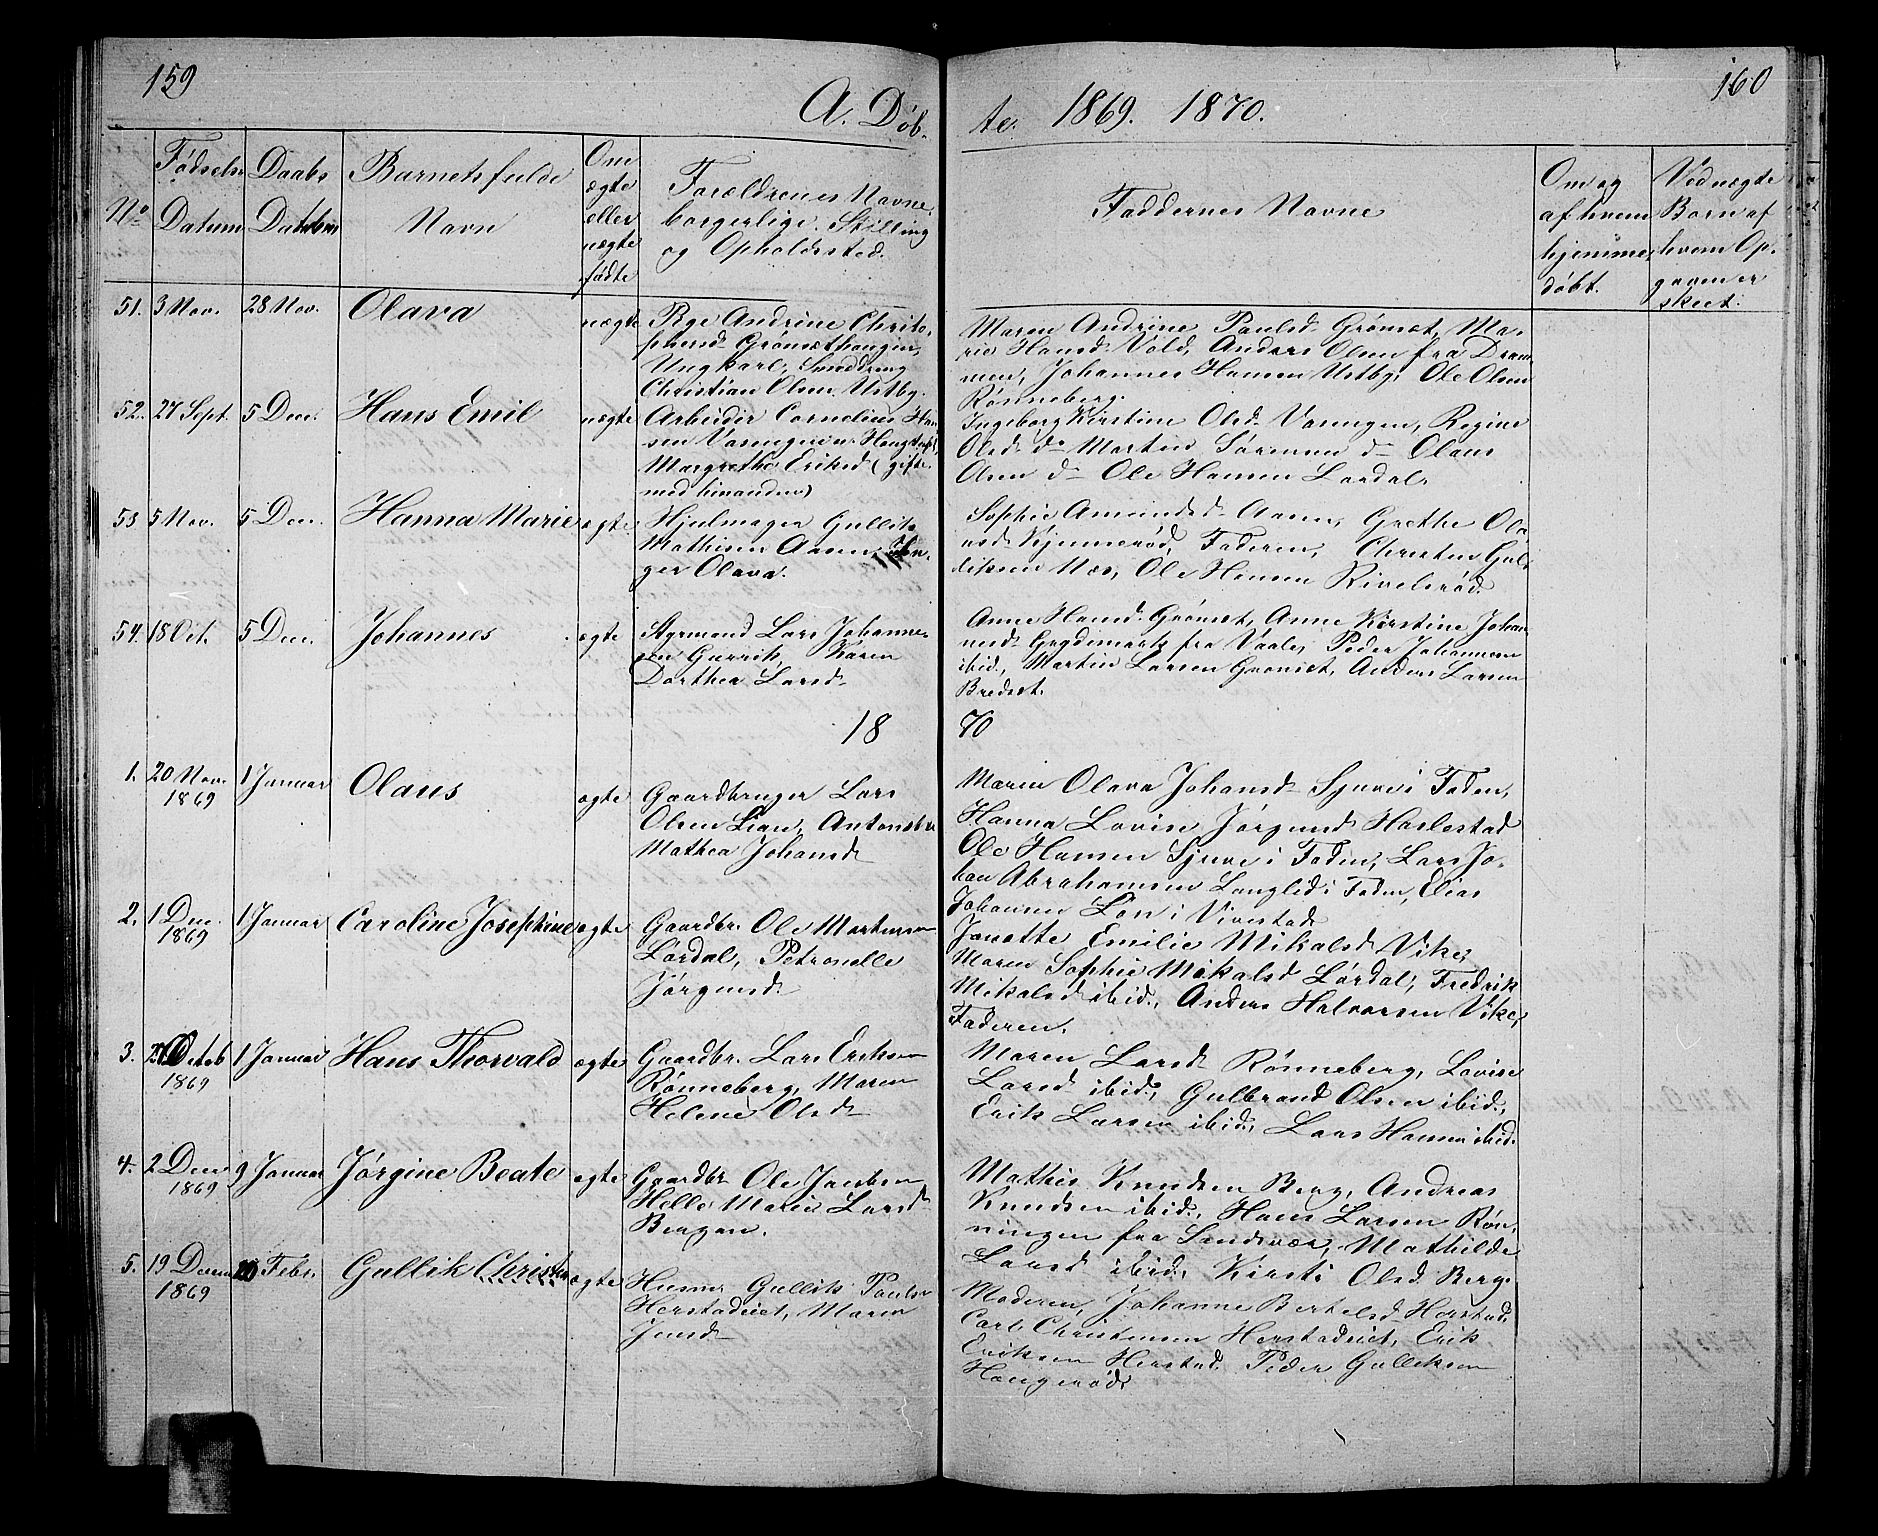 159
A. Døb-
te. 1869. 1870.
160
No
Fødsels
Datum
Daabs
Datum
Barnets fulde
Navn
Om
ægte
eller
uægte
fødte
Forældrenes Navne,
borgerlige Stilling
og Opholdssted.
Faddernes Navne
Om og
af hvem
hjemme-
døbt.
Ved uægte
Børn af
hvem Op-
gaven er
skeet.
51. 3 Nov. 28 Nov. Olava uægte
Pige Andrine Christo-
phersd. Grønsæthaugen,
Ungkarl, Smeddreng
Christian Olsen Ustby.
Maren Andrine Paulsd. Grønsæt, Ma-
rie Hansd. Vold, Anders Olsen fra Dram-
men, Johannes Hansen Ustby, Ole Olsen
Rønneberg.
52. 27 Sept. 5 Dec. Hans Emil uægte
Arbeider Cornelius Han-
sen
Margrethe Eriksd. (gifte
med hinanden)
Ingeborg Kirstine Olsd. Regine
Olsd. do Martin Sørensen do Olaus
Olsen do Ole Hansen Lordal.
53 5 Nov. 5 Dec. Hanna Marie ægte
Hjulmager Gullik
Mathisen Aasen, In-
ger Olava.
Sophie Amundsd. Aasen, Grethe Ola-
usd. Faderen, Christen Gul-
liksen Næs, Ole Hansen
54. 18 Oct. 5 Dec. Johannes ægte
Styrmand Lars Johanne-
sen Karen
Dorthea Larsd.
Anne Hansd. Grønset, Anne Kirstine Johan-
nesd. fra Vaale, Peder Johannesen
ibid., Martin Larsen Grønset, Anders Larsen
Bredset.
18
70
1. 20 Nov. 1869 1 Januar Olaus ægte
Gaardbruger Lars
Olsen Lian,
Mathea Johansd.
Maren Olava Johansd. Sjue i Foden,
Hanna Lovise Jørgensd. Harlestad
Ole Hansen Sjue i Foden, Lars Jo-
han Abrahamsen Langlid i Foden, Elias
Johannes Løn i Vivestad
2. 1 Dec. 1869 1 Januar Caroline Josephine ægte
Gaardbr. Ole Martinsen
Lørdal, Petronelle
Jørgensd.
Janette Emilie Mikalsd. Vike,
Maren Sophie Mikalsd. Lørdal, Fredrik
Mikalsd. ibid., Anders Halvorsen Vike,
Faderen.
3. Octob 1869 1 Januar Hans Thorvald ægte
Gaardbr. Lars Eriksen
Rønneberg, Maren
Helene Olsd.
Maren Larsd. Rønneberg, Lovise
Larsd. ibid., Gulbrand Olsen ibid.,
Erik Larsen ibid., Lars Hansen ibid.
4. 2 Dec 1869 9 Januar Jørgine Beate ægte
Gaardbr. Ole Jacobsen
Helle Marie Larsd.
Bergan.
Mathis Knudsen Berg, Andreas
Knudsen ibid., Hans Larsen Røn-
ningen fra Sandsvær, Mathilde
Larsd. ibid., Kirsti Olsd. Berg.
5. 19 Decem 1869 20 Febr. Gullik Christian ægte
Husm. Gullik Pauls.
Herstadeiet, Maren
Jensd.
Moderen, Johanne Bertelsd. Herstad,
Carl Christensen Herstadeiet, Erik
Eriksen Herstad. Peder Gulliksen
Haugerød.